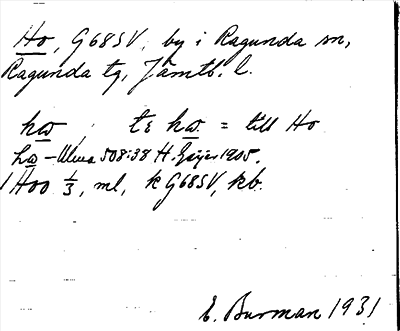 Ho, G68SV, by i Ragunda sn,
Ragunda tg, Jämtl. l.
hω̲, tε hω̲ = till Ho
hω̲ – Ulma 508:38 H. Geijer 1905.
1 Hoo 1/3, ml, k G68SV, kb.
E. Burman 1931